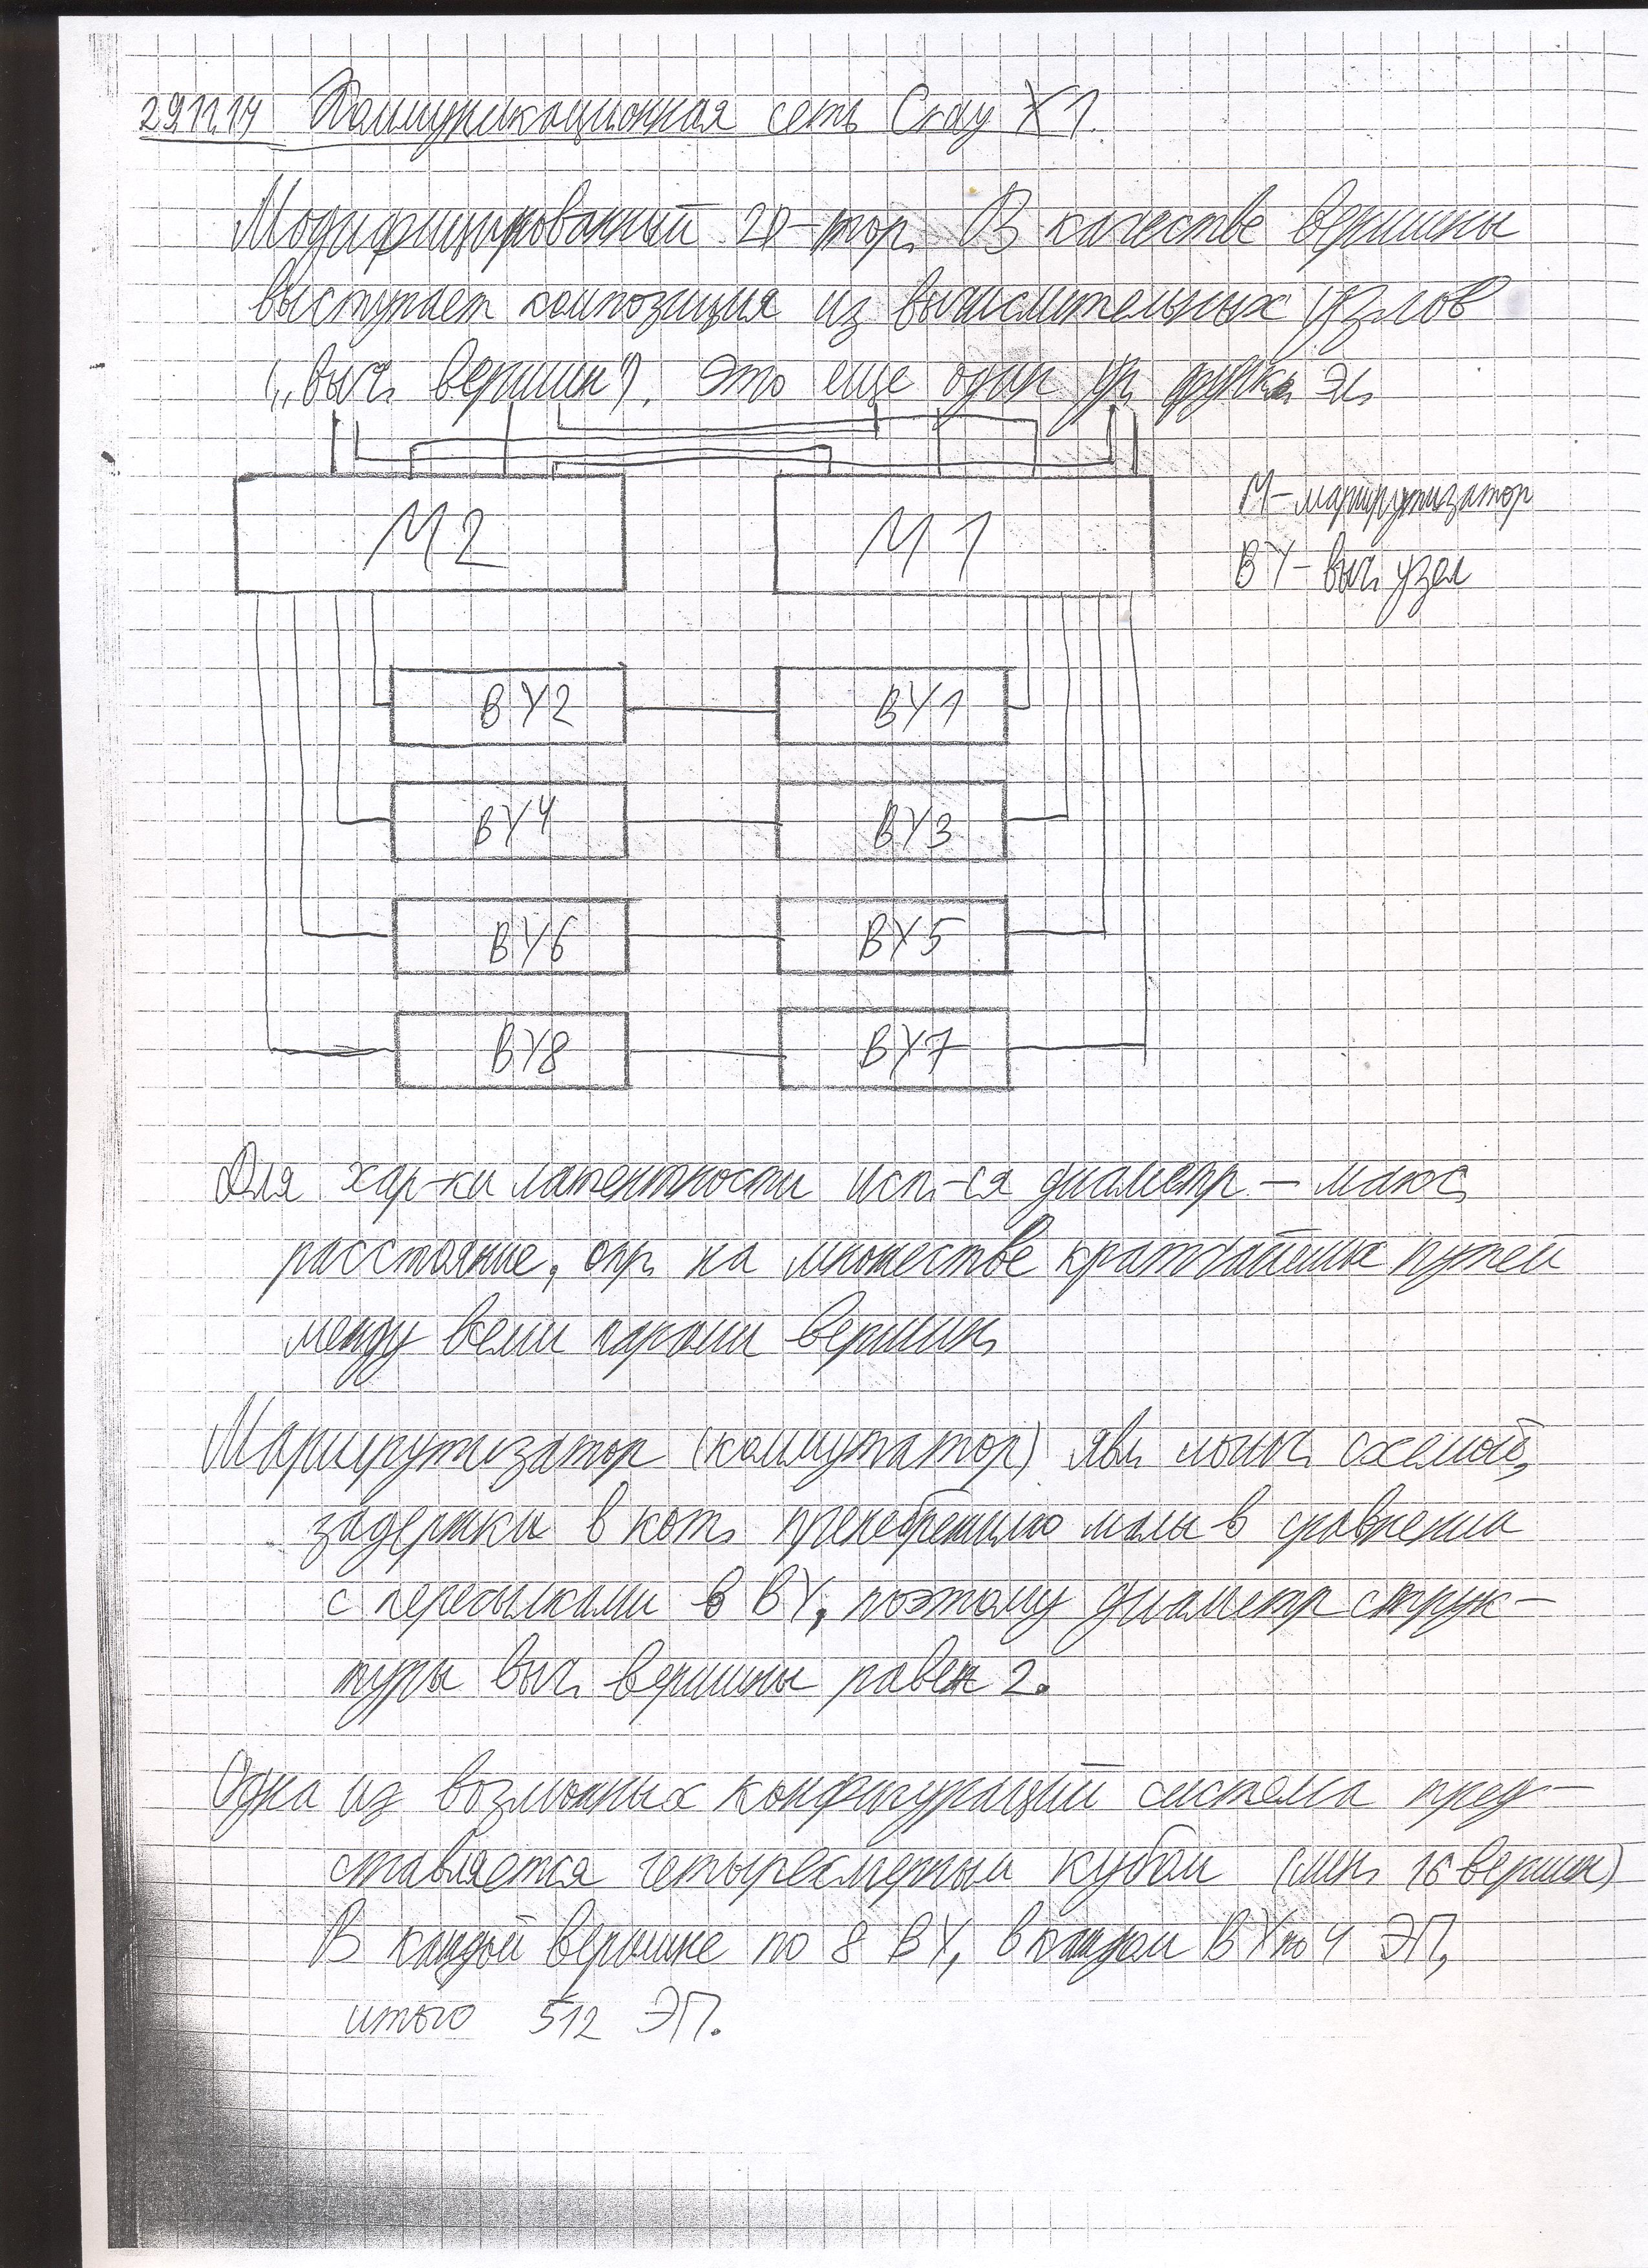 29.11.14 Коммуникационная сеть Cray X1.
Модифицированный 2D-тор. В качестве вершины
выступает композиция из вычислительных узлов
(„выч. вершин"). Это еще один ур. функ. эл.
М2 М1
М-маршрутизатор
ВУ-выч. узел
ВУ2 ВУ1
ВУ4 ВУ3
ВУ6 ВУ5
ВУ8 ВУ7
Для хар-ки латентности исп.-ся диаметр - макс.
расстояние, опр. на множестве кратчайших путей
между всеми парами вершин.
Маршрутизатор (коммутатор) явл. логич. схемой,
задержки в кот. пренебрежимо малы в сравнении
с пересылками в ВУ, поэтому диаметр струк-
туры выч. вершины равен 2.
Одна из возможных конфигураций система пред-
ставляется четырехмерным кубом (мин. 16 вершин)
В каждой вершине по 8 ВУ, в каждом ВУ по 4 ЭП,
итого 512 ЭП.